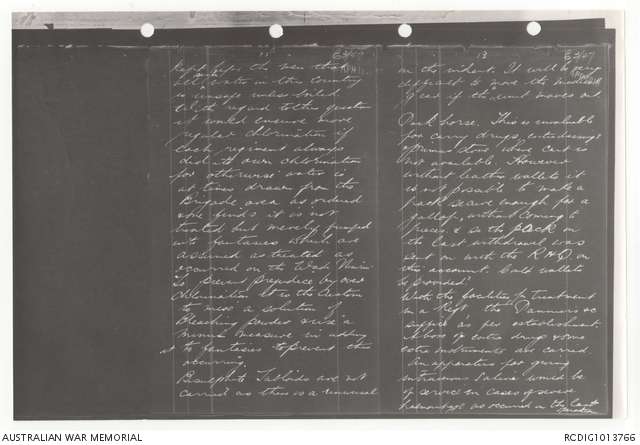 12
kept before the men that
all water in this country
is unsafe unless boiled
With regard to this question
it would ensure more
regular chlorination if
each regiment always
did its own chlorination
for otherwise water is
at times drawn from the
Brigade area as ordered
and finds it is not
treated but merely pumped
into fantasses which are
assumed as treated as
occurred on the Wadi
To prevent prejudice by over
chlorination it is the custom
to use a solution of
Bleaching Powder
measure in adding
it to fantasses to prevent this
occurring.
Bisulphate Tabloids are not
carried as this is a universal
13
on the subject. It will be very
difficult to have the medical
if the unit moves out
Pack horse. This is invaluable
for carrying drugs, extra dressings
when cart is
not available. However
without leather wallets it
is not possible to make a
pack secure enough for a
gallop, without coming to
pieces & so the pack on
the last withdrawal was
sent on with the RHQ on
this account. Could wallets
be provided?
With the facilities for treatment
in a Regt. the Panniers &c
suffice as per establishment.
extra drugs & some
extra instruments are carried
An apparatus for giving
intravenous saline would be
of service in cases of severe
haemorrhage as occurred in the last
AUSTRALIAN WAR MEMORIAL
RCDIG1013766